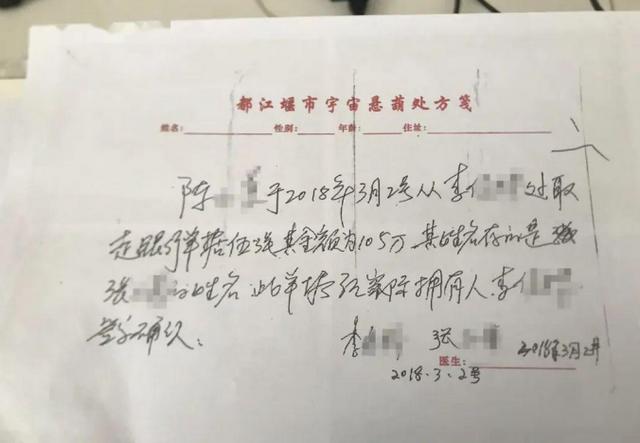 都江堰市宇宙悬葫处方笺
姓名: 性别: 年龄: 住址:
陈 于2018年3月2号从李仁 处取
走银行单据伍张其金额为105万 其姓名存的是我
张 的姓名 此单据经实际拥有人李仁
签字确认:
李 张
医生: 2018年3月2号
2018.3.2号